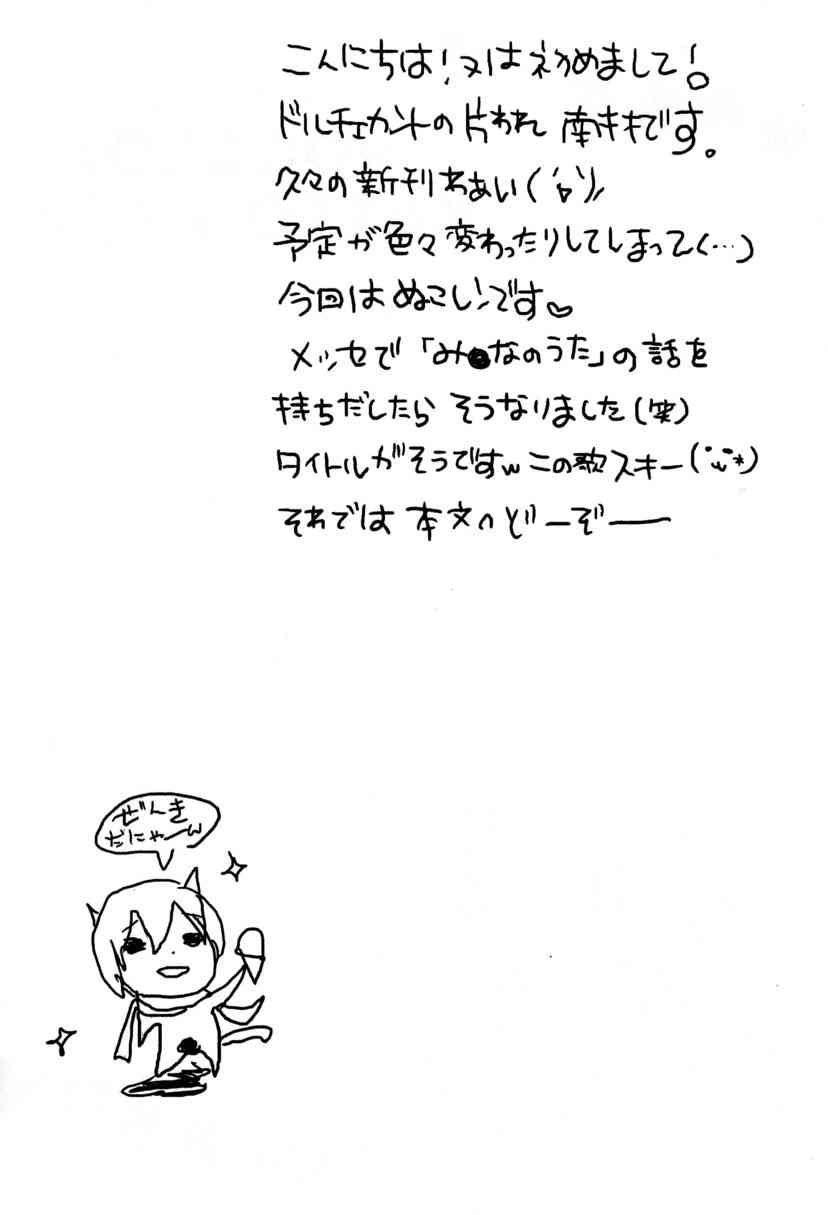 こんにちは!又は初めまして!
ドルチェカントの片われ 南キキです。
久々の新刊わあい('ワ')ノ
予定が色々変わったりしてしまって(…)
今回はぬこレンです♡
メッセで「み●なのうた」の話を
持ちだしたら そうなりました(笑)
タイトルがそうですw この歌スキー(・ω・*)
それでは 本文へどーぞー
ぜんき
だにゃーw